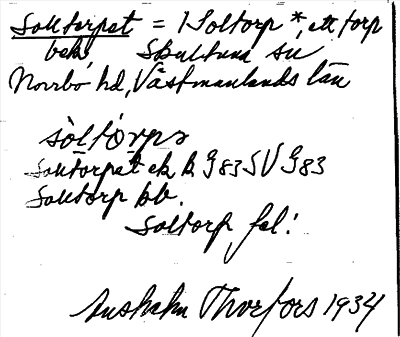 Soltorpet = 1 Soltorp *, ett torp
bek, Skultuna sn
Norrbo hd, Västmanlands län
sòltórps
Soltorpet ek bl G 83 SV G 83
Soltorp kb.
Soltorp fel:
Thorfors 1934